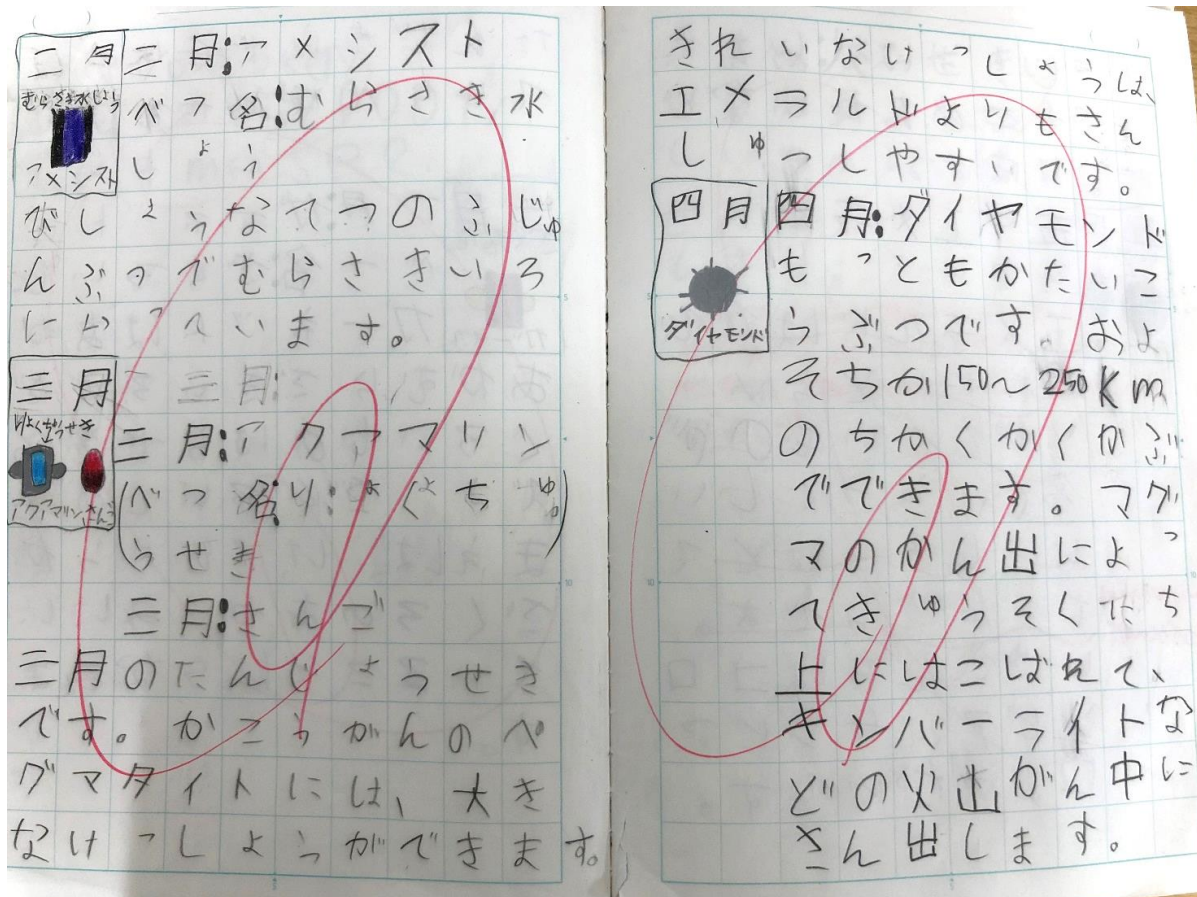 二月
むらさき水しょう
アメシスト
三月:アメシスト
べつ名:むらさき水
しょう
びしょうなてつのふじゅ
んぶつでむらさきいろ
になっています。
三月
りょくちゅうせき
アクアマリン、さんご
三月:
三月:アクアマリン
(べつ名り:ょくちゅ
うせき)
三月:さんご
三月のたんじょうせき
です。かこうがんのペ
グマタイトには、大き
なけっしょうができます。
きれいなけっしょうは、
エメラルドよりもさん
しゅつしやすいです。
四月
ダイヤモンド
四月:ダイヤモンド
もっともかたいこ
うぶつです。およ
そちか150~250Km
のちかくかくかぶ
でできます。マグ
マのかん出によっ
てきゅうそくたち
上にはこばれて、
キンバーライトな
どの火山がん中に
さん出します。